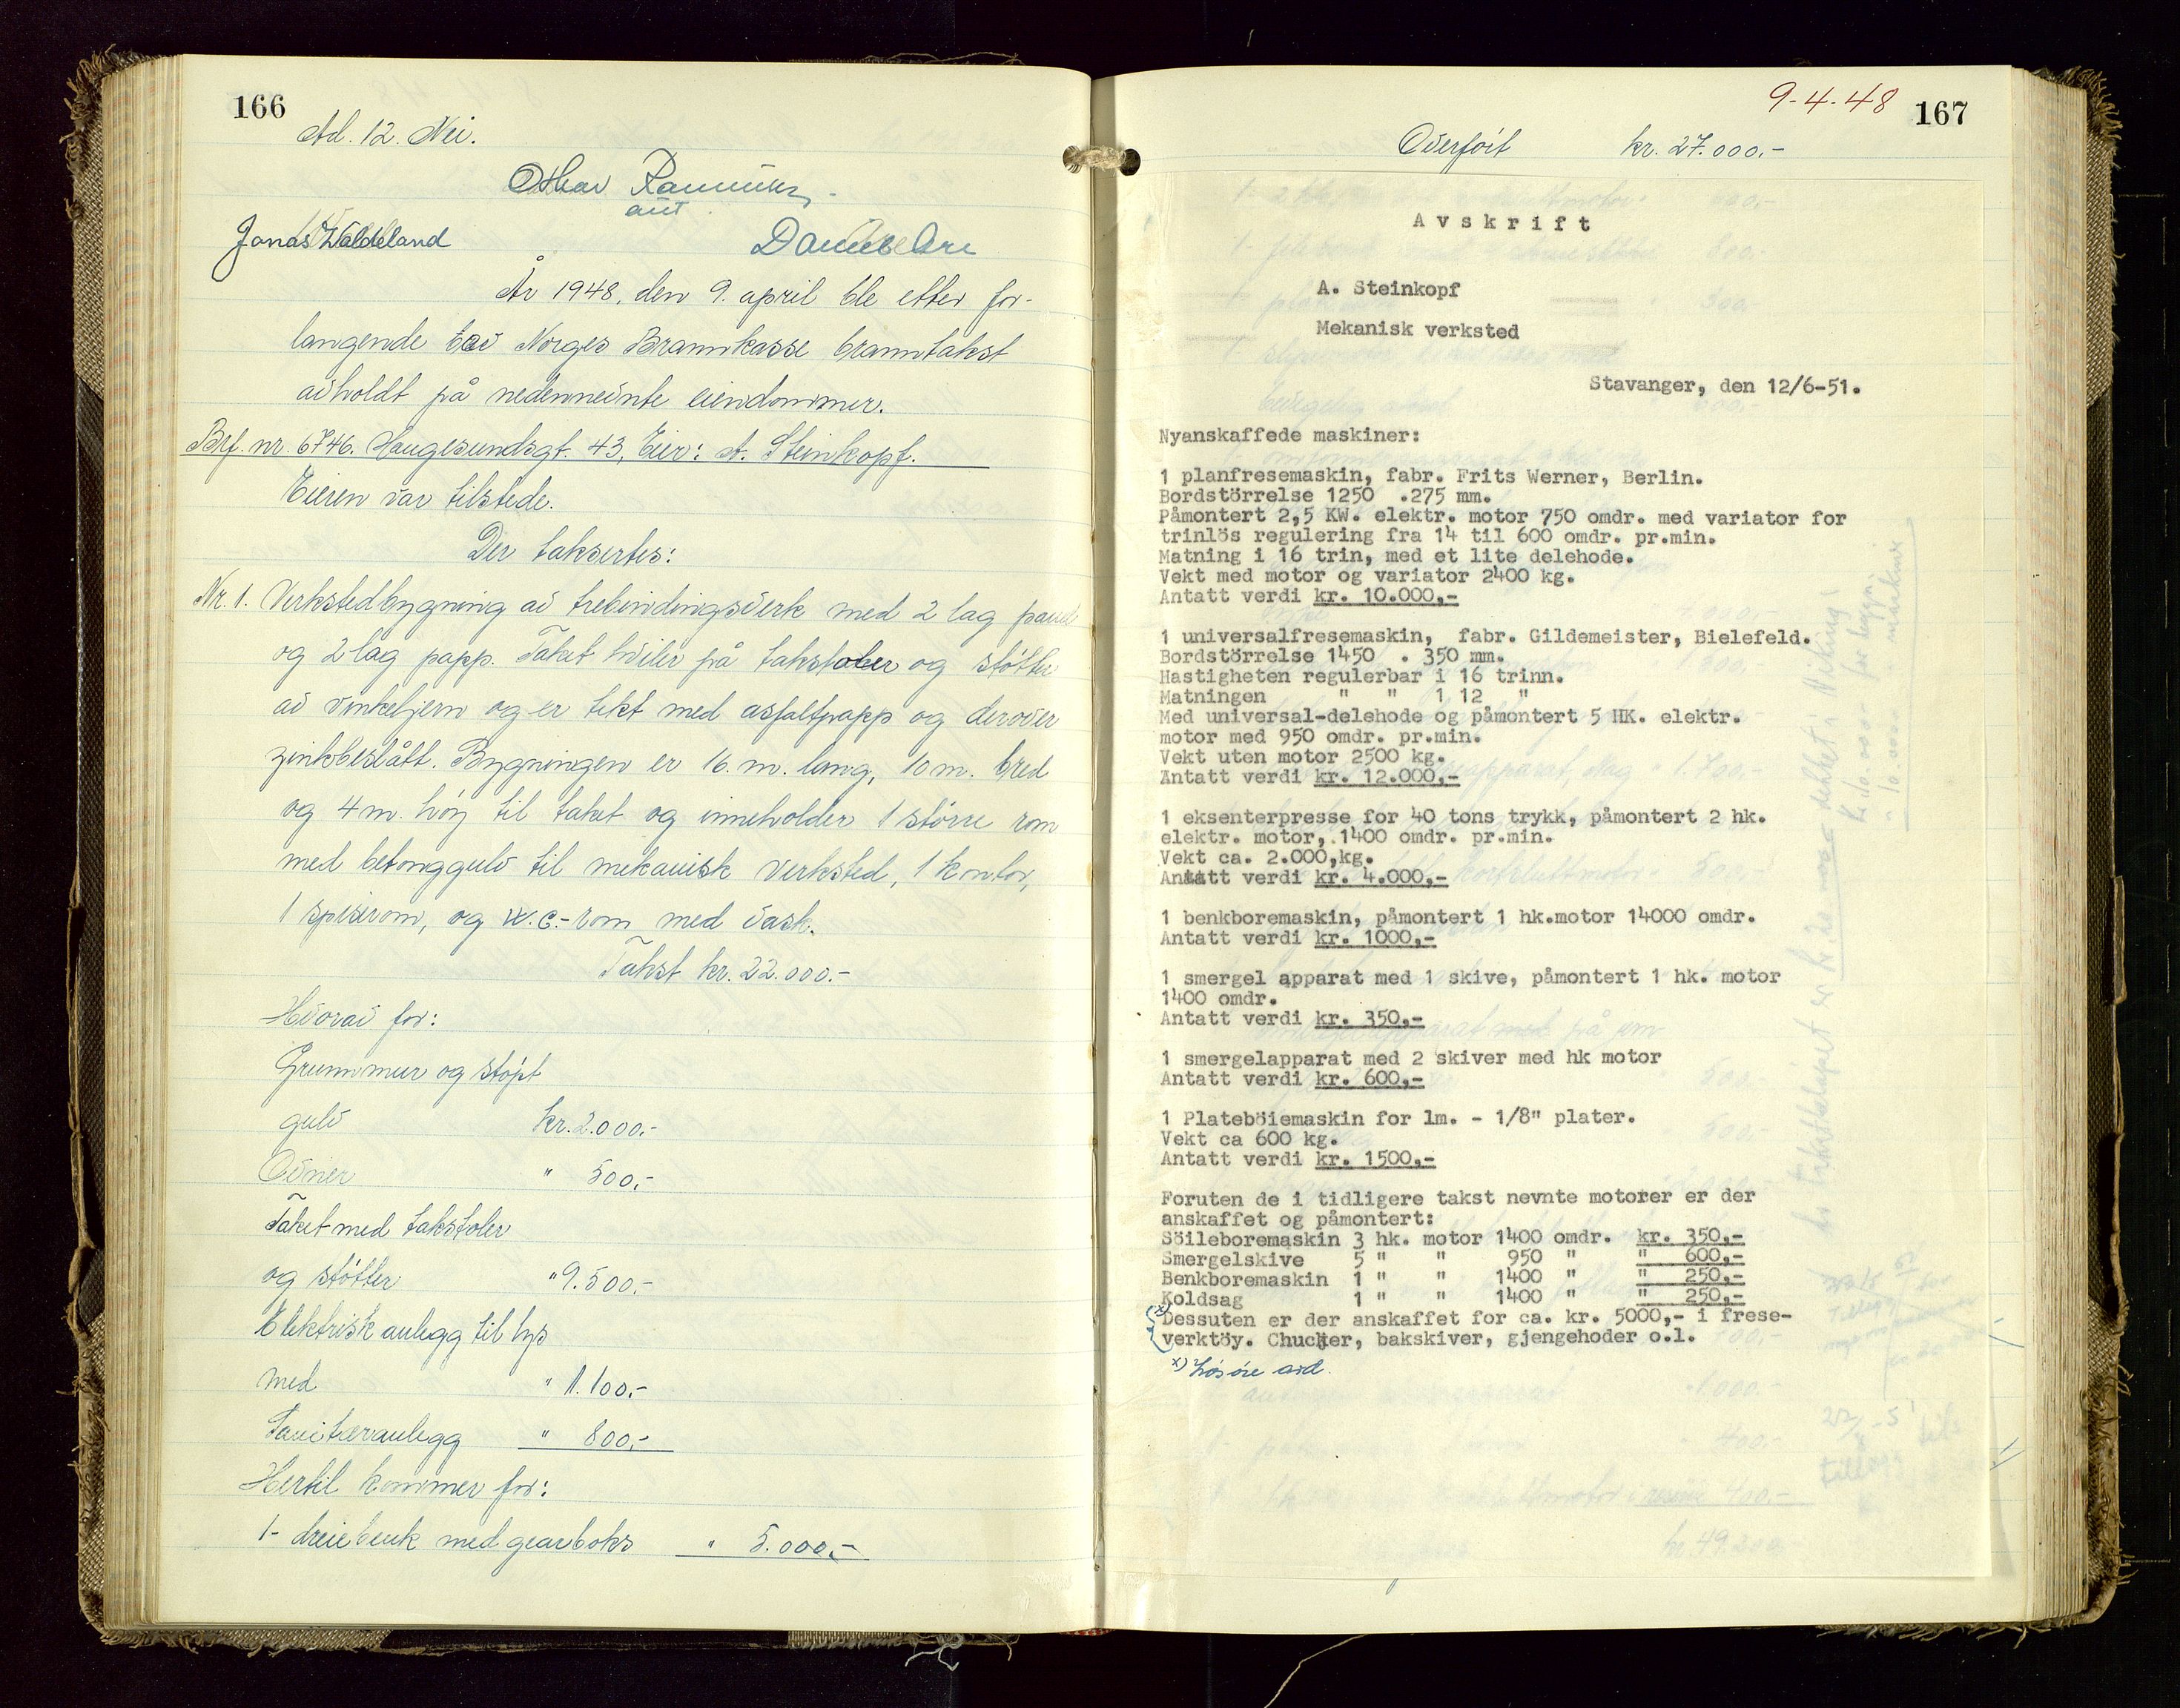 166
Ad. 12. Nei.
Othar
aut
Jonas Waldeland
År 1948, den 9. april ble etter for-
langende av Norges Brannkasse branntakst
avholdt på nedennevnte eiendommer.
Brf. nr. 6746. Haugesundsgt. 43, Eier: A. Steinkopf.
Eieren var tilstede.
Der taksertes:
Nr. 1. Verkstedbygning av trebindingsverk med 2 lag panel
og 2 lag papp. Taket hviler på takstoler og støtter
av vinkeljern og er tekt med asfaltpapp og derover
zinkbeslått. Bygningen er 16. m. lang, 10 m. bred
og 4 m. høy til taket og inneholder 1 større rom
med betonggulv til mekanisk verksted, 1 kontor,
1 spiserom, og w.c.-rom med vask.
Takst kr. 22.000.-
Hvorav for:
Grunnmur og støpt
gulv kr. 2.000.-
Ovner " 500.-
Taket med takstoler
og støtter " 9.500.-
Elektrisk anlegg til lys
med " 1.100.-
Sanitæranlegg " 800.-
Hertil kommer for:
1- dreiebenk med gearboks " 5.000.-
9-4-48
167
Overført kr. 27.000.-
Avskrift
A. Steinkopf
Mekanisk verksted
Stavanger, den 12/6-51.
Nyanskaffede maskiner:
1 planfresemaskin, fabr. Frits Werner, Berlin.
Bordstörrelse 1250 .275 mm.
Påmontert 2,5 KW. elektr. motor 750 omdr. med variator for
trinlös regulering fra 14 til 600 omdr. pr.min.
Matning i 16 trin, med et lite delehode.
Vekt med motor og variator 2400 kg.
Antatt verdi kr. 10.000,-
1 universalfresemaskin, fabr. Gildemeister, Bielefeld.
Bordstörrelse 1450 . 350 mm.
Hastigheten regulerbar i 16 trinn.
Matningen " " 1 12 "
Med universal-delehode og påmontert 5 HK. elektr.
motor med 950 omdr. pr.min.
Vekt uten motor 2500 kg.
Antatt verdi kr. 12.000,-
1 eksenterpresse for 40 tons trykk, påmontert 2 hk.
elektr. motor, 1400 omdr. pr.min.
Vekt ca. 2.000,kg.
Antatt verdi kr. 4.000,-
1 benkboremaskin, påmontert 1 hk.motor 14000 omdr.
Antatt verdi kr. 1000,-
1 smergel apparat med 1 skive, påmontert 1 hk. motor
1400 omdr.
Antatt verdi kr. 350,-
1 smergelapparat med 2 skiver med hk motor
Antatt verdi kr. 600,-
1 Plateböiemaskin for 1m. - 1/8" plater.
Vekt ca 600 kg.
Antatt verdi kr. 1500,-
Foruten de i tidligere takst nevnte motorer er der
anskaffet og påmontert:
Söileboremaskin 3 hk. motor 1400 omdr. kr. 350,-
Smergelskive 5 " " 950 " " 600,-
Benkboremaskin 1 " " 1400 " " 250,-
Koldsag 1 " " 1400 " " 250,-
x) Dessuten er der anskaffet for ca. kr. 5000,- i frese-
verktöy. Chucker, bakskiver, gjengehoder o.l.
x) Løsøre